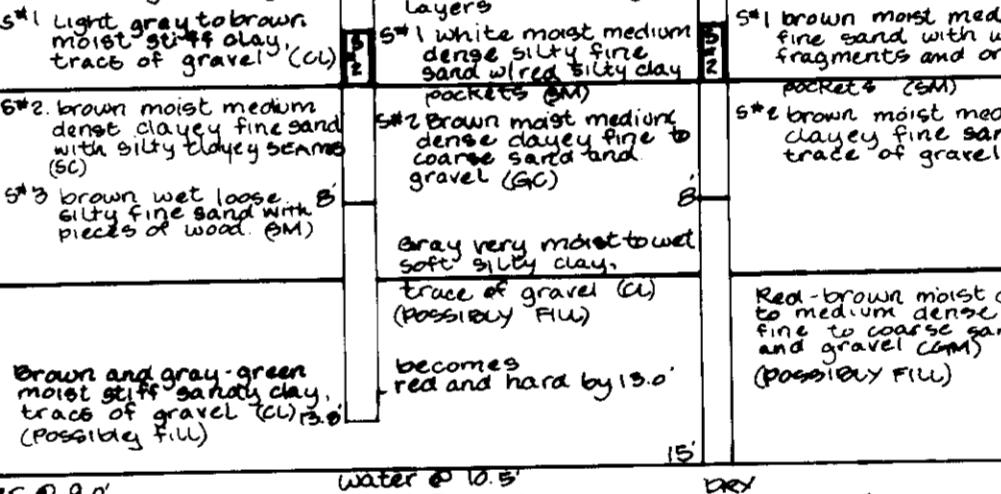 S#1 Light gray to brown
moist stiff clay,
trace of gravel (CL)
S#2. brown moist medium
dense clayey fine sand
with silty clayey SEAMS
(SC)
S#3 brown wet loose
silty fine sand with
pieces of wood. (SM)
Brown and gray-green
moist stiff sandy clay,
trace of gravel (CL)
(Possibley Fill)
S#2
8'
13.8'
Layers
S#1 white moist medium
dense silty fine
sand w/red silty clay
pockets (SM)
S#2 Brown moist medium
dense clayey fine to
coarse sand and
gravel (GC)
Gray very moist to wet
soft silty clay,
trace of gravel (CL)
(POSSIBLY FILL)
becomes
red and hard by 13.0'
S#2
8'
15'
S#1 brown moist med
fine sand with
fragments and or
pockets (SM)
S#2 brown moist med
clayey fine sa
trace of gravel
Red-brown moist
to medium dense
fine to coarse sa
and gravel (GM)
(POSSIBLY FILL)
@ 9.0'
water @ 10.5'
DRY